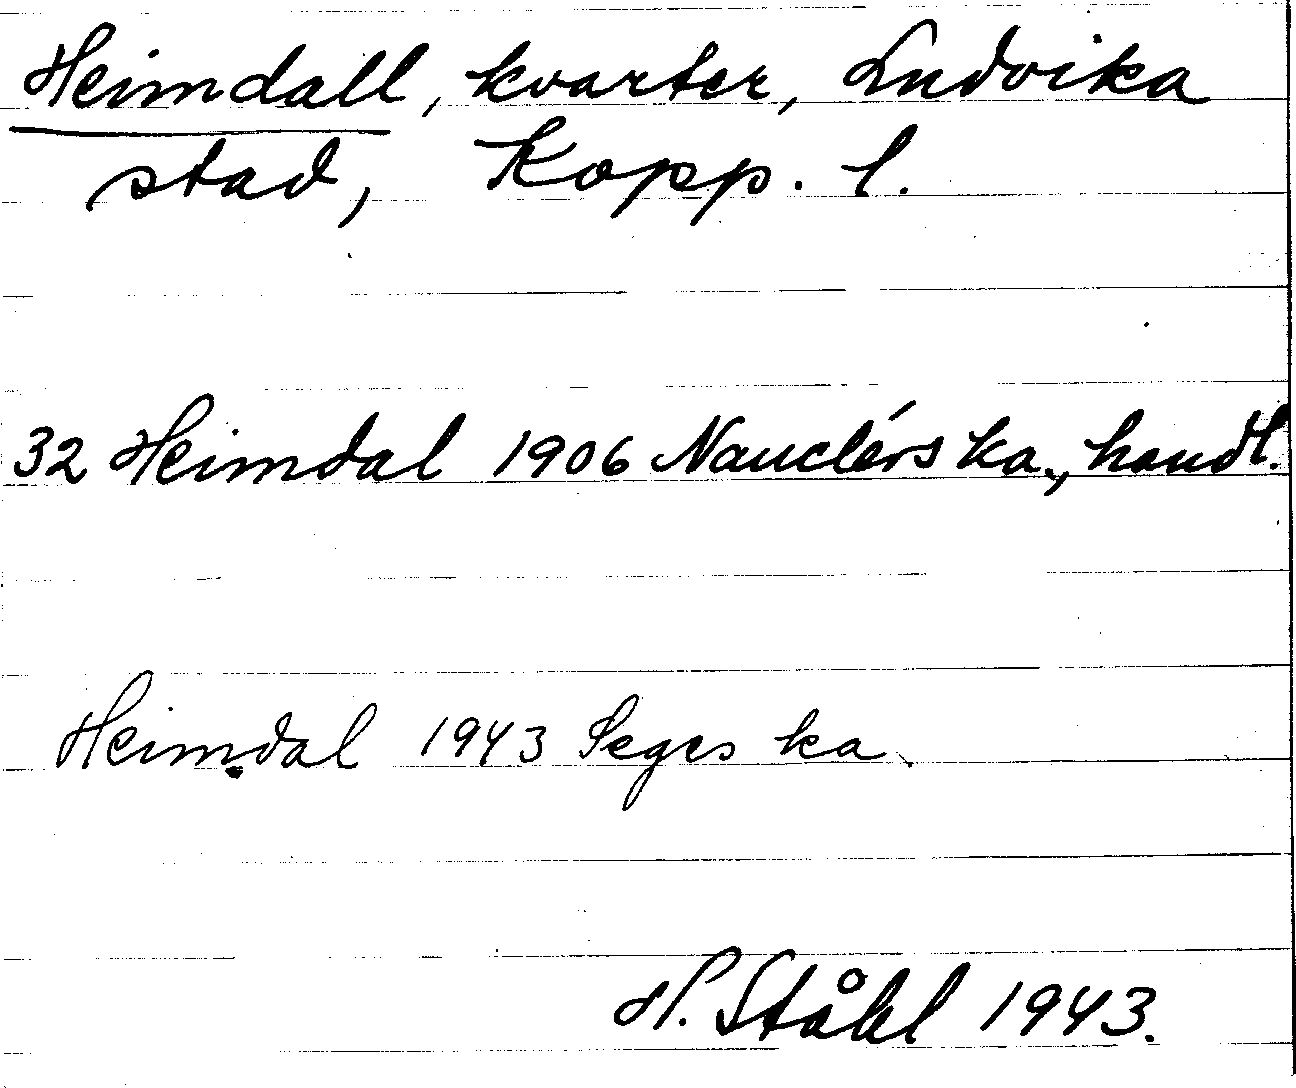 Heimdall, kvarter, Ludvika
stad, Kopp. l.
32 Heimdal 1906 Nauclérs ka., handl.
Heimdal 1943 Seges ka.
H. Ståhl 1943.